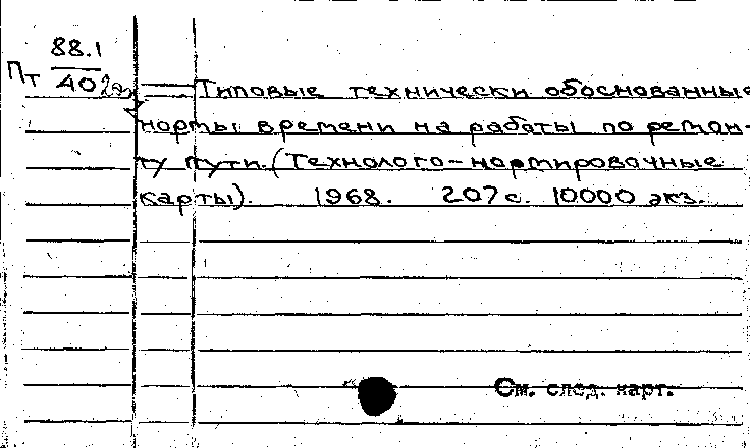 88.1
Пт 402
Типовые технически обоснованные
нормы времени на работы по ремон-
ту пути. (Технолого-нормировочные
карты). 1968. 207 с. 10000 экз.
См. след. карт.